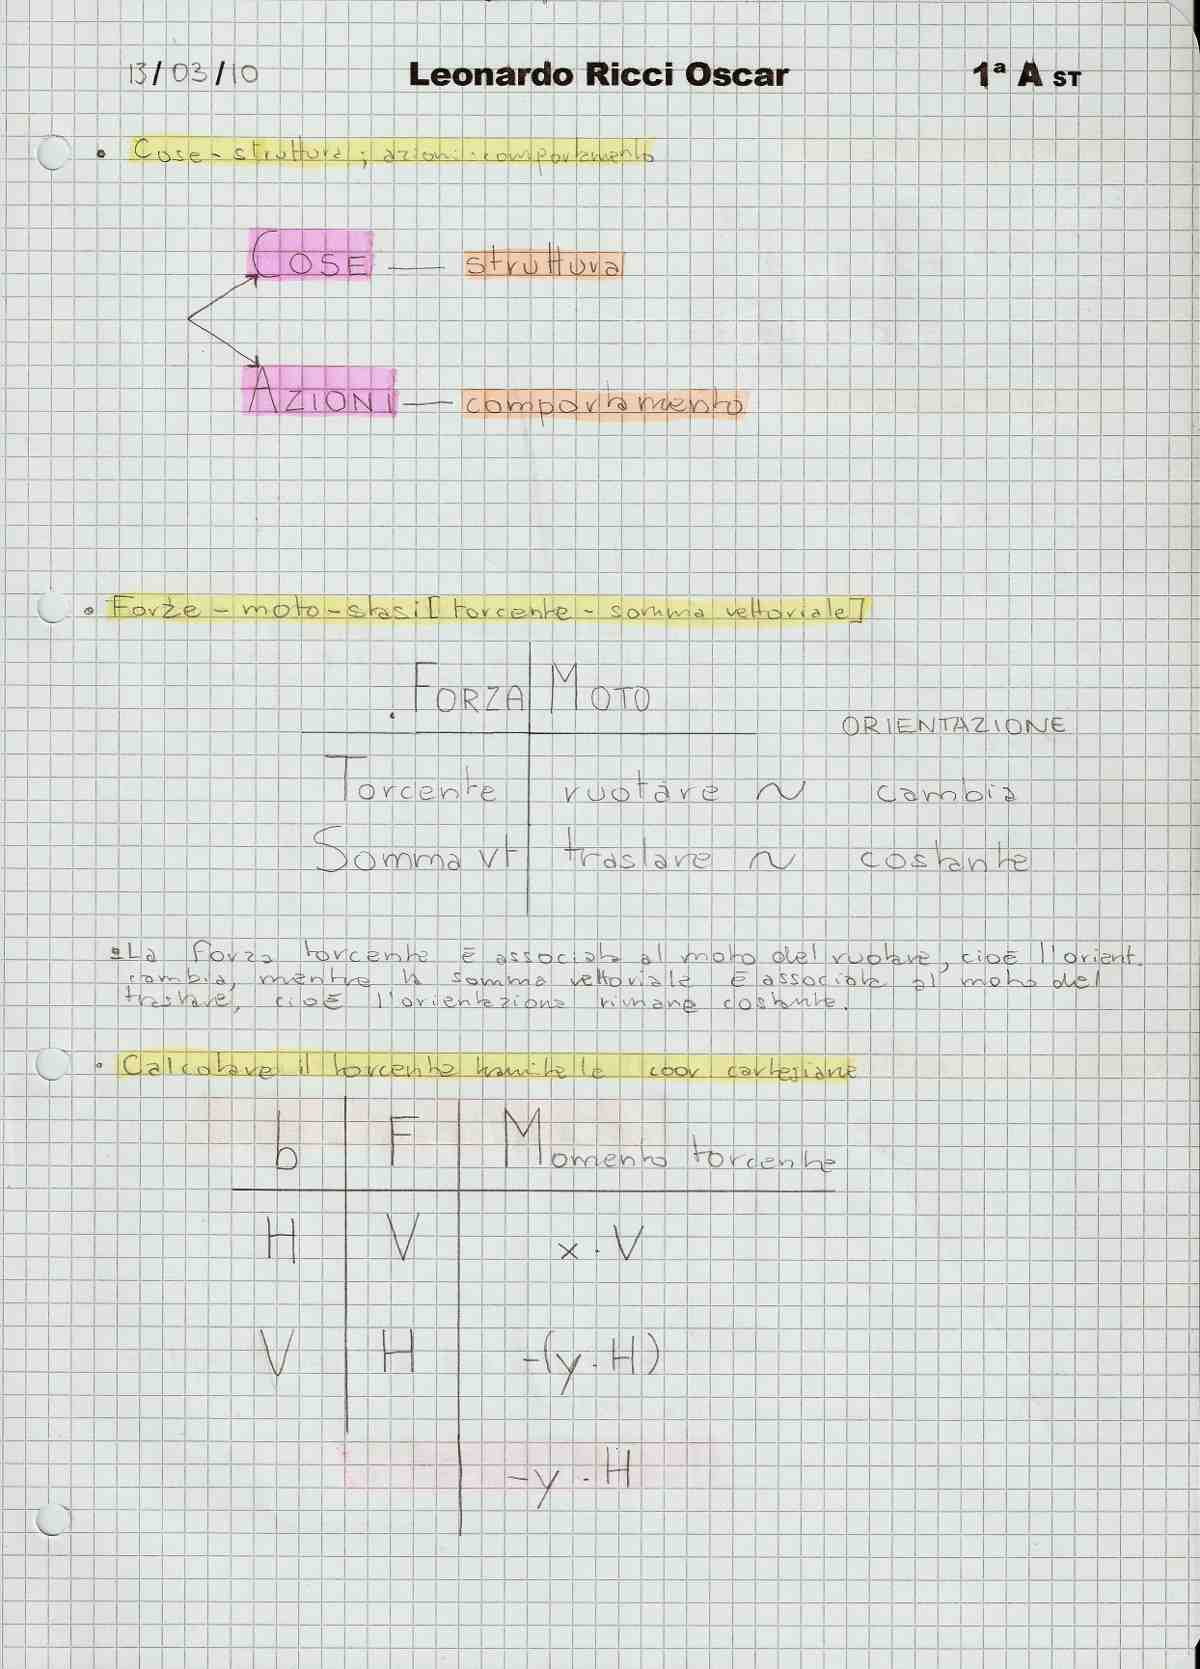 13/03/10 Leonardo Ricci Oscar 1ª A ST
• Cose - struttura; azioni: comportamento
COSE — struttura
AZIONI — comportamento
• Forze - moto - stasi [torcente - somma vettoriale]
FORZA | MOTO
ORIENTAZIONE
Torcente | ruotare ~ cambia
Somma vt | traslare ~ costante
• La forza torcente è associata al moto del ruotare, cioè l'orient.
cambia, mentre la somma vettoriale è associata al moto del
traslare, cioè l'orientazione rimane costante.
• Calcolare il torcente tramite le coor cartesiane
b | F | Momento torcente
H | V | x · V
V | H | -(y · H)
-y · H